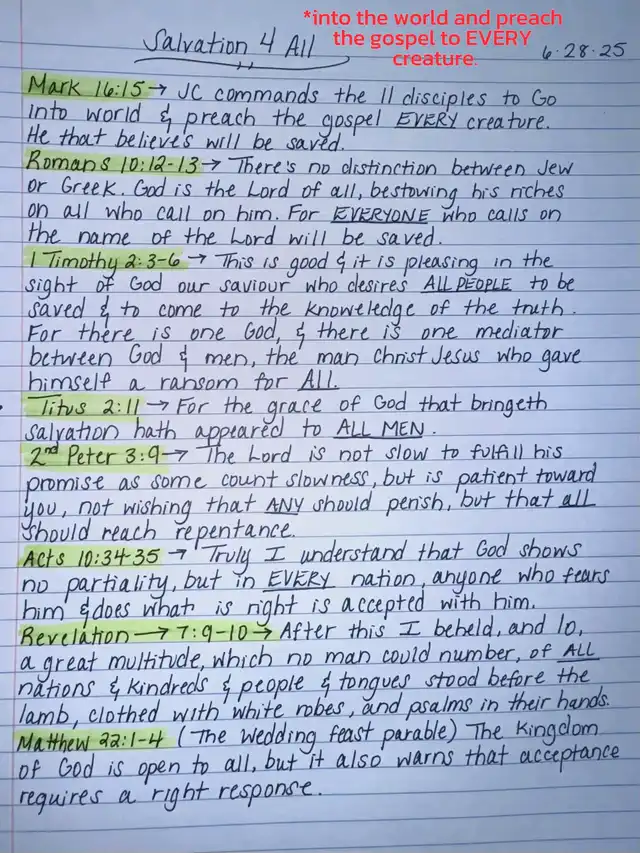 *into the world and preach
the gospel to EVERY
creature.
Salvation 4 All
6·28·25
Mark 16:15 → JC commands the 11 disciples to Go
into world & preach the gospel EVERY creature.
He that believe's will be saved.
Romans 10:12-13 → There's no distinction between Jew
or Greek. God is the Lord of all, bestowing his riches
on all who call on him. For EVERYONE who calls on
the name of the Lord will be saved.
1 Timothy 2:3-6 → This is good & it is pleasing in the
sight of God our saviour who desires ALL PEOPLE to be
saved & to come to the knoweledge of the truth.
For there is one God, & there is one mediator
between God & men, the man Christ Jesus who gave
himself a ransom for ALL.
Titus 2:11 → For the grace of God that bringeth
salvation hath appeared to ALL MEN.
2nd Peter 3:9 → The Lord is not slow to fulfill his
promise as some count slowness, but is patient toward
you, not wishing that ANY should perish, but that all
should reach repentance.
Acts 10:34-35 → Truly I understand that God shows
no partiality, but in EVERY nation, anyone who fears
him & does what is right is accepted with him.
Revelation → 7:9-10 → After this I beheld, and lo,
a great multitude, which no man could number, of ALL
nations & kindreds & people & tongues stood before the
lamb, clothed with white robes, and psalms in their hands.
Matthew 22:1-4 (The wedding feast parable) The Kingdom
of God is open to all, but it also warns that acceptance
requires a right response.